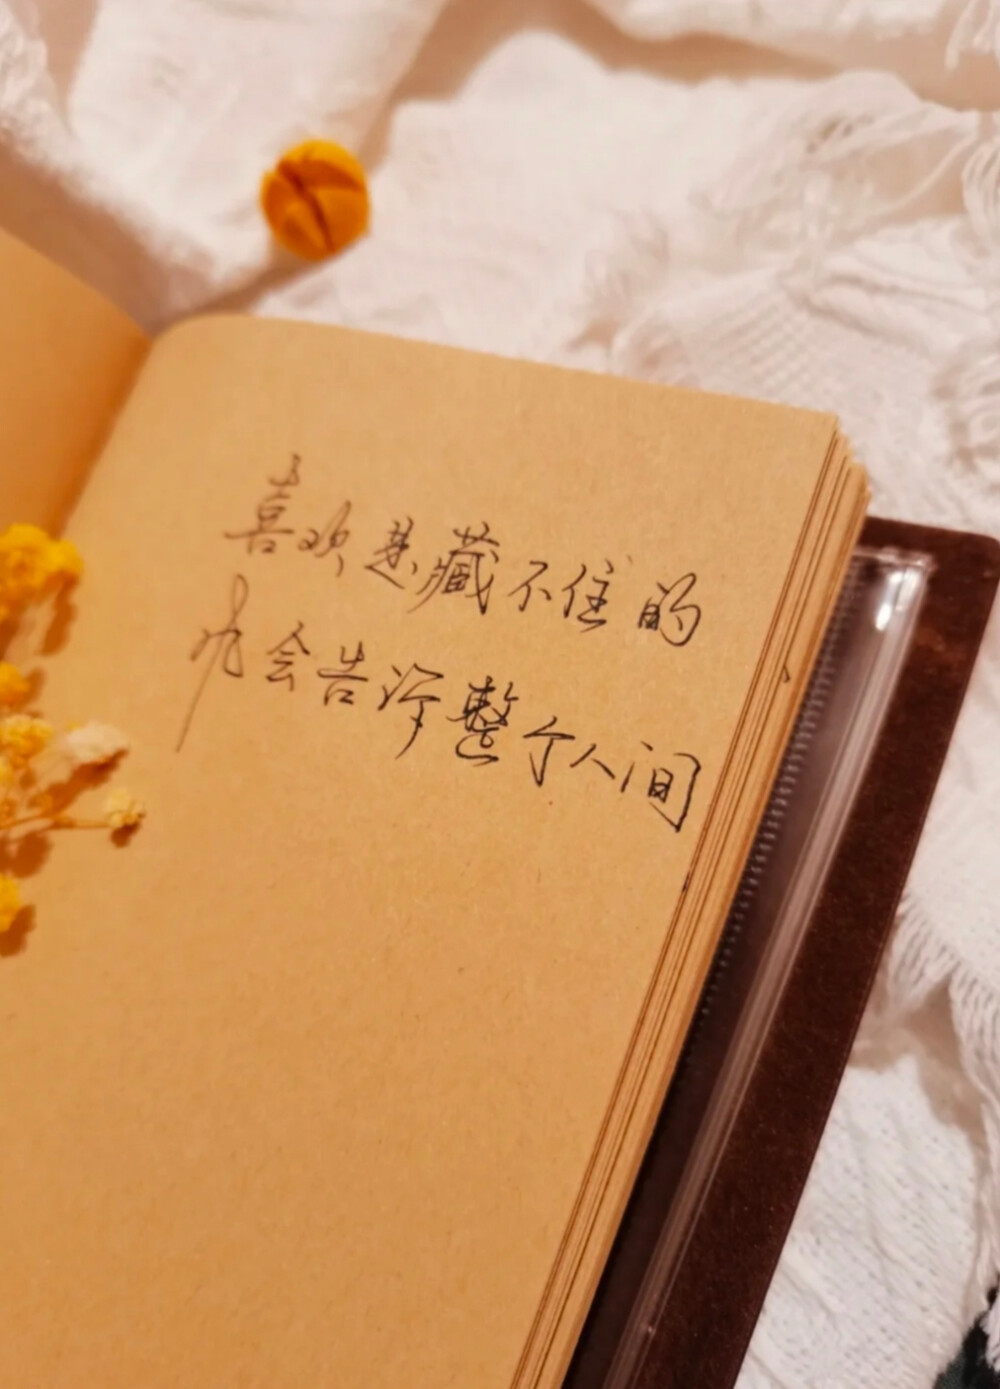 喜欢是藏不住的
也会告诉整个人间